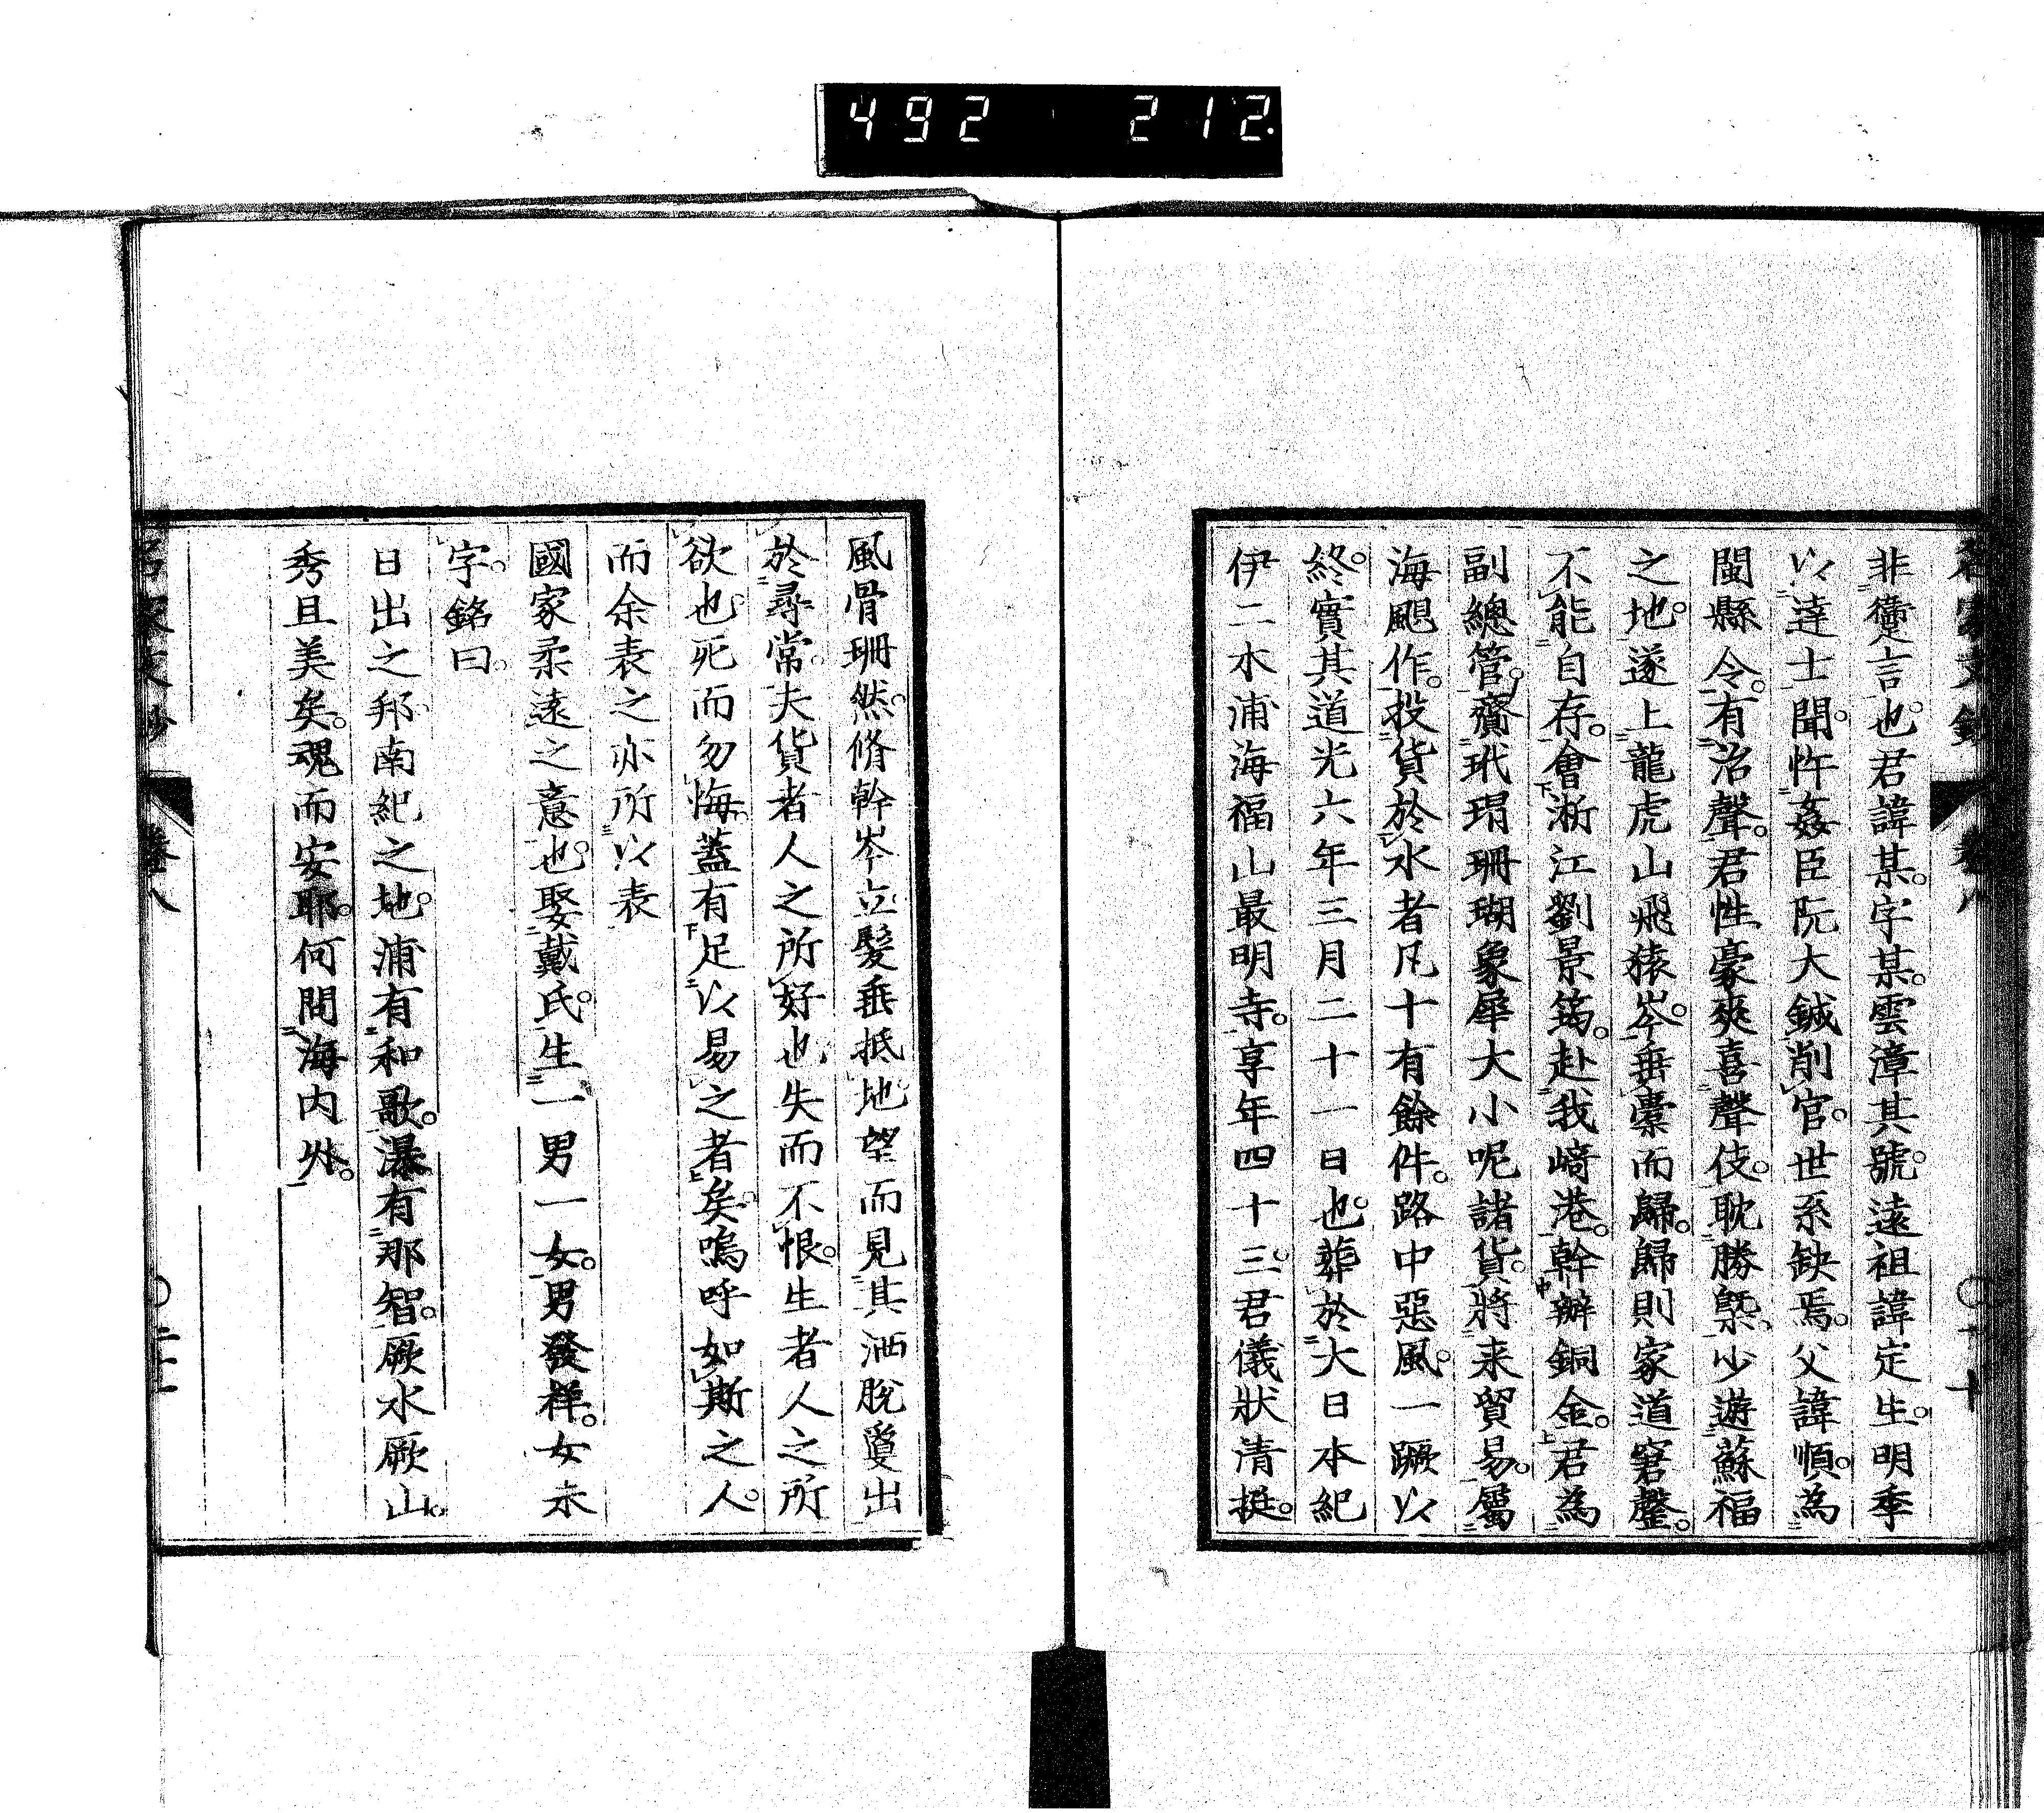 492 212
非躗言也。君諱某。字某。雲漳其號。遠祖諱定生。明季
以達士聞。忤姦臣阮大鋮削官。世系缺焉。父諱順。為
閩縣令。有治聲。君性豪爽喜聲伎。耽勝槩。少遊蘇福
之地。遂上龍虎山飛猿岑。垂橐而歸。歸則家道窘罄。
不能自存。會淅江劉景筠。赴我﨑港。幹辦銅金。君為
副總管。齎玳瑁珊瑚象犀大小呢諸貨。將来貿易。屬
海颶作。投貨於水者凡十有餘件。路中惡風。一蹶以
終。實其道光六年三月二十一日也。葬於大日本紀
伊二木浦海福山最明寺。享年四十三。君儀狀清挺。
風骨珊然。脩幹岑立。髮垂抵地。望而見其洒脫夐出
於尋常。夫貨者人之所好也失而不恨。生者人之所
欲也。死而勿悔。蓋有足以易之者矣。嗚呼如斯之人。
而余表之亦所以表
國家柔遠之意也。娶戴氏。生一男一女。男發祥。女未
字。銘曰。
日出之邦南紀之地。浦有和歌。瀑有那智。厥水厥山。
秀且美矣。魂而安耶。何間海内外。
名家文抄 卷八 〇二十一